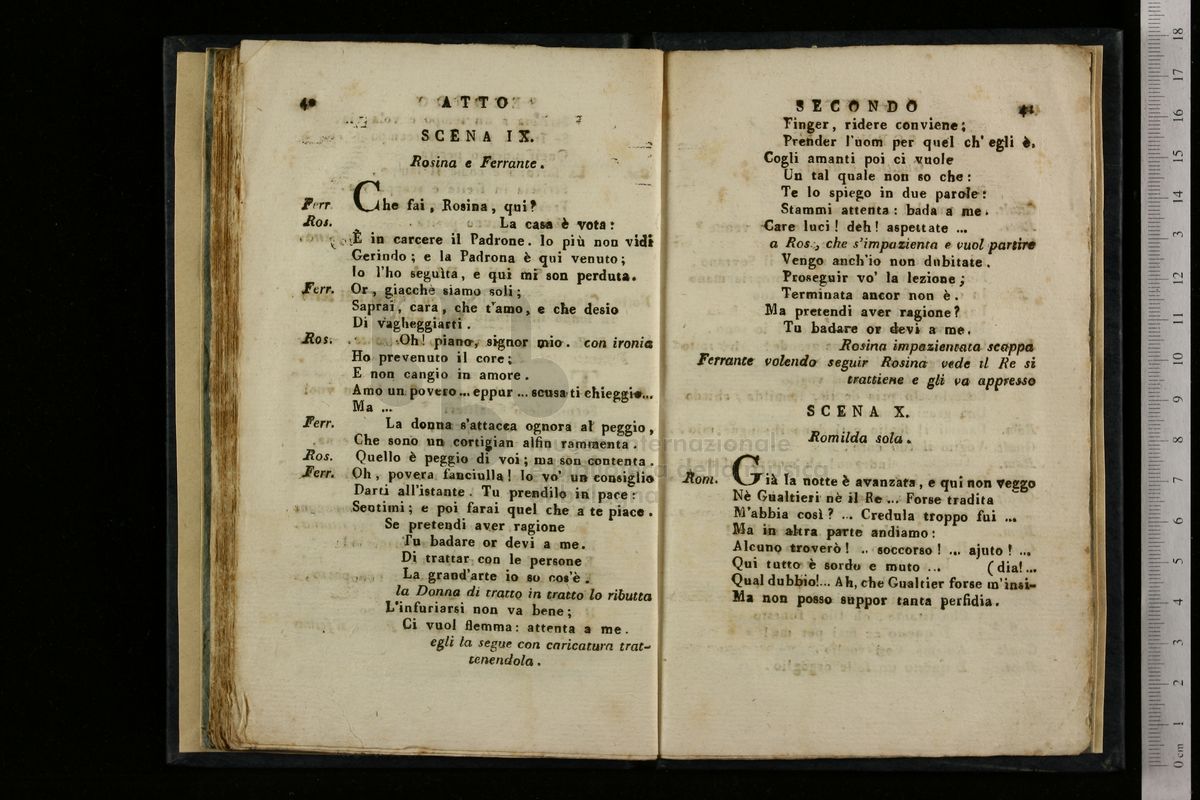 40
ATTO
SCENA IX.
Rosina e Ferrante.
Ferr. Che fai, Rosina, qui?
Ros. La casa è vota:
È in carcere il Padrone. Io più non vidi
Gerindo; e la Padrona è qui venuto;
Io l'ho seguìta, e qui mi son perduta.
Ferr. Or, giacchè siamo soli;
Saprai, cara, che t'amo, e che desio
Di vagheggiarti.
Ros. Oh! piano, signor mio. con ironia
Ho prevenuto il core;
E non cangio in amore.
Amo un povero... eppur ... scusa ti chieggio...
Ma ...
Ferr. La donna s'attacca ognora al peggio,
Che sono un cortigian alfin rammenta.
Ros. Quello è peggio di voi; ma son contenta.
Ferr. Oh, povera fanciulla! Io vo' un consiglio
Darti all'istante. Tu prendilo in pace:
Sentimi; e poi farai quel che a te piace.
Se pretendi aver ragione
Tu badare or devi a me.
Di trattar con le persone
La grand'arte io so cos'è.
la Donna di tratto in tratto lo ributta
L'infuriarsi non va bene;
Ci vuol flemma: attenta a me.
egli la segue con caricatura trat-
tenendola.
SECONDO
41
Finger, ridere conviene;
Prender l'uom per quel ch'egli è.
Cogli amanti poi ci vuole
Un tal quale non so che:
Te lo spiego in due parole:
Stammi attenta: bada a me.
Care luci! deh! aspettate ...
a Ros., che s'impazienta e vuol partire
Vengo anch'io non dubitate.
Proseguir vo' la lezione;
Terminata ancor non è.
Ma pretendi aver ragione?
Tu badare or devi a me.
Rosina impazientata scappa
Ferrante volendo seguir Rosina vede il Re si
trattiene e gli va appresso
SCENA X.
Romilda sola.
Rom. Già la notte è avanzata, e qui non veggo
Nè Gualtieri nè il Re ... Forse tradita
M'abbia così? ... Credula troppo fui ...
Ma in altra parte andiamo:
Alcuno troverò! .. soccorso! ... ajuto! ...
Qui tutto è sordo e muto ... (dia!...
Qual dubbio!... Ah, che Gualtier forse m'insi-
Ma non posso suppor tanta perfidia.
internazionale
della musica
0 cm 1 2 3 4 5 6 7 8 9 10 11 12 13 14 15 16 17 18